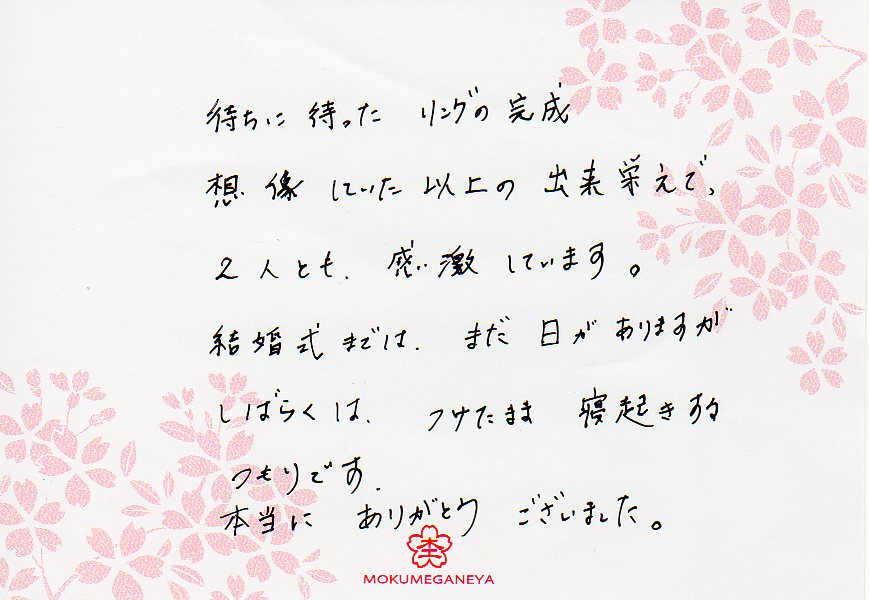 待ちに待った リングの完成
想像していた以上の出来栄えで、
2人とも、感激しています。
結婚式までは、まだ日がありますが
しばらくは、つけたまま 寝起きする
つもりです。
本当に ありがとう ございました。
MOKUMEGANEYA